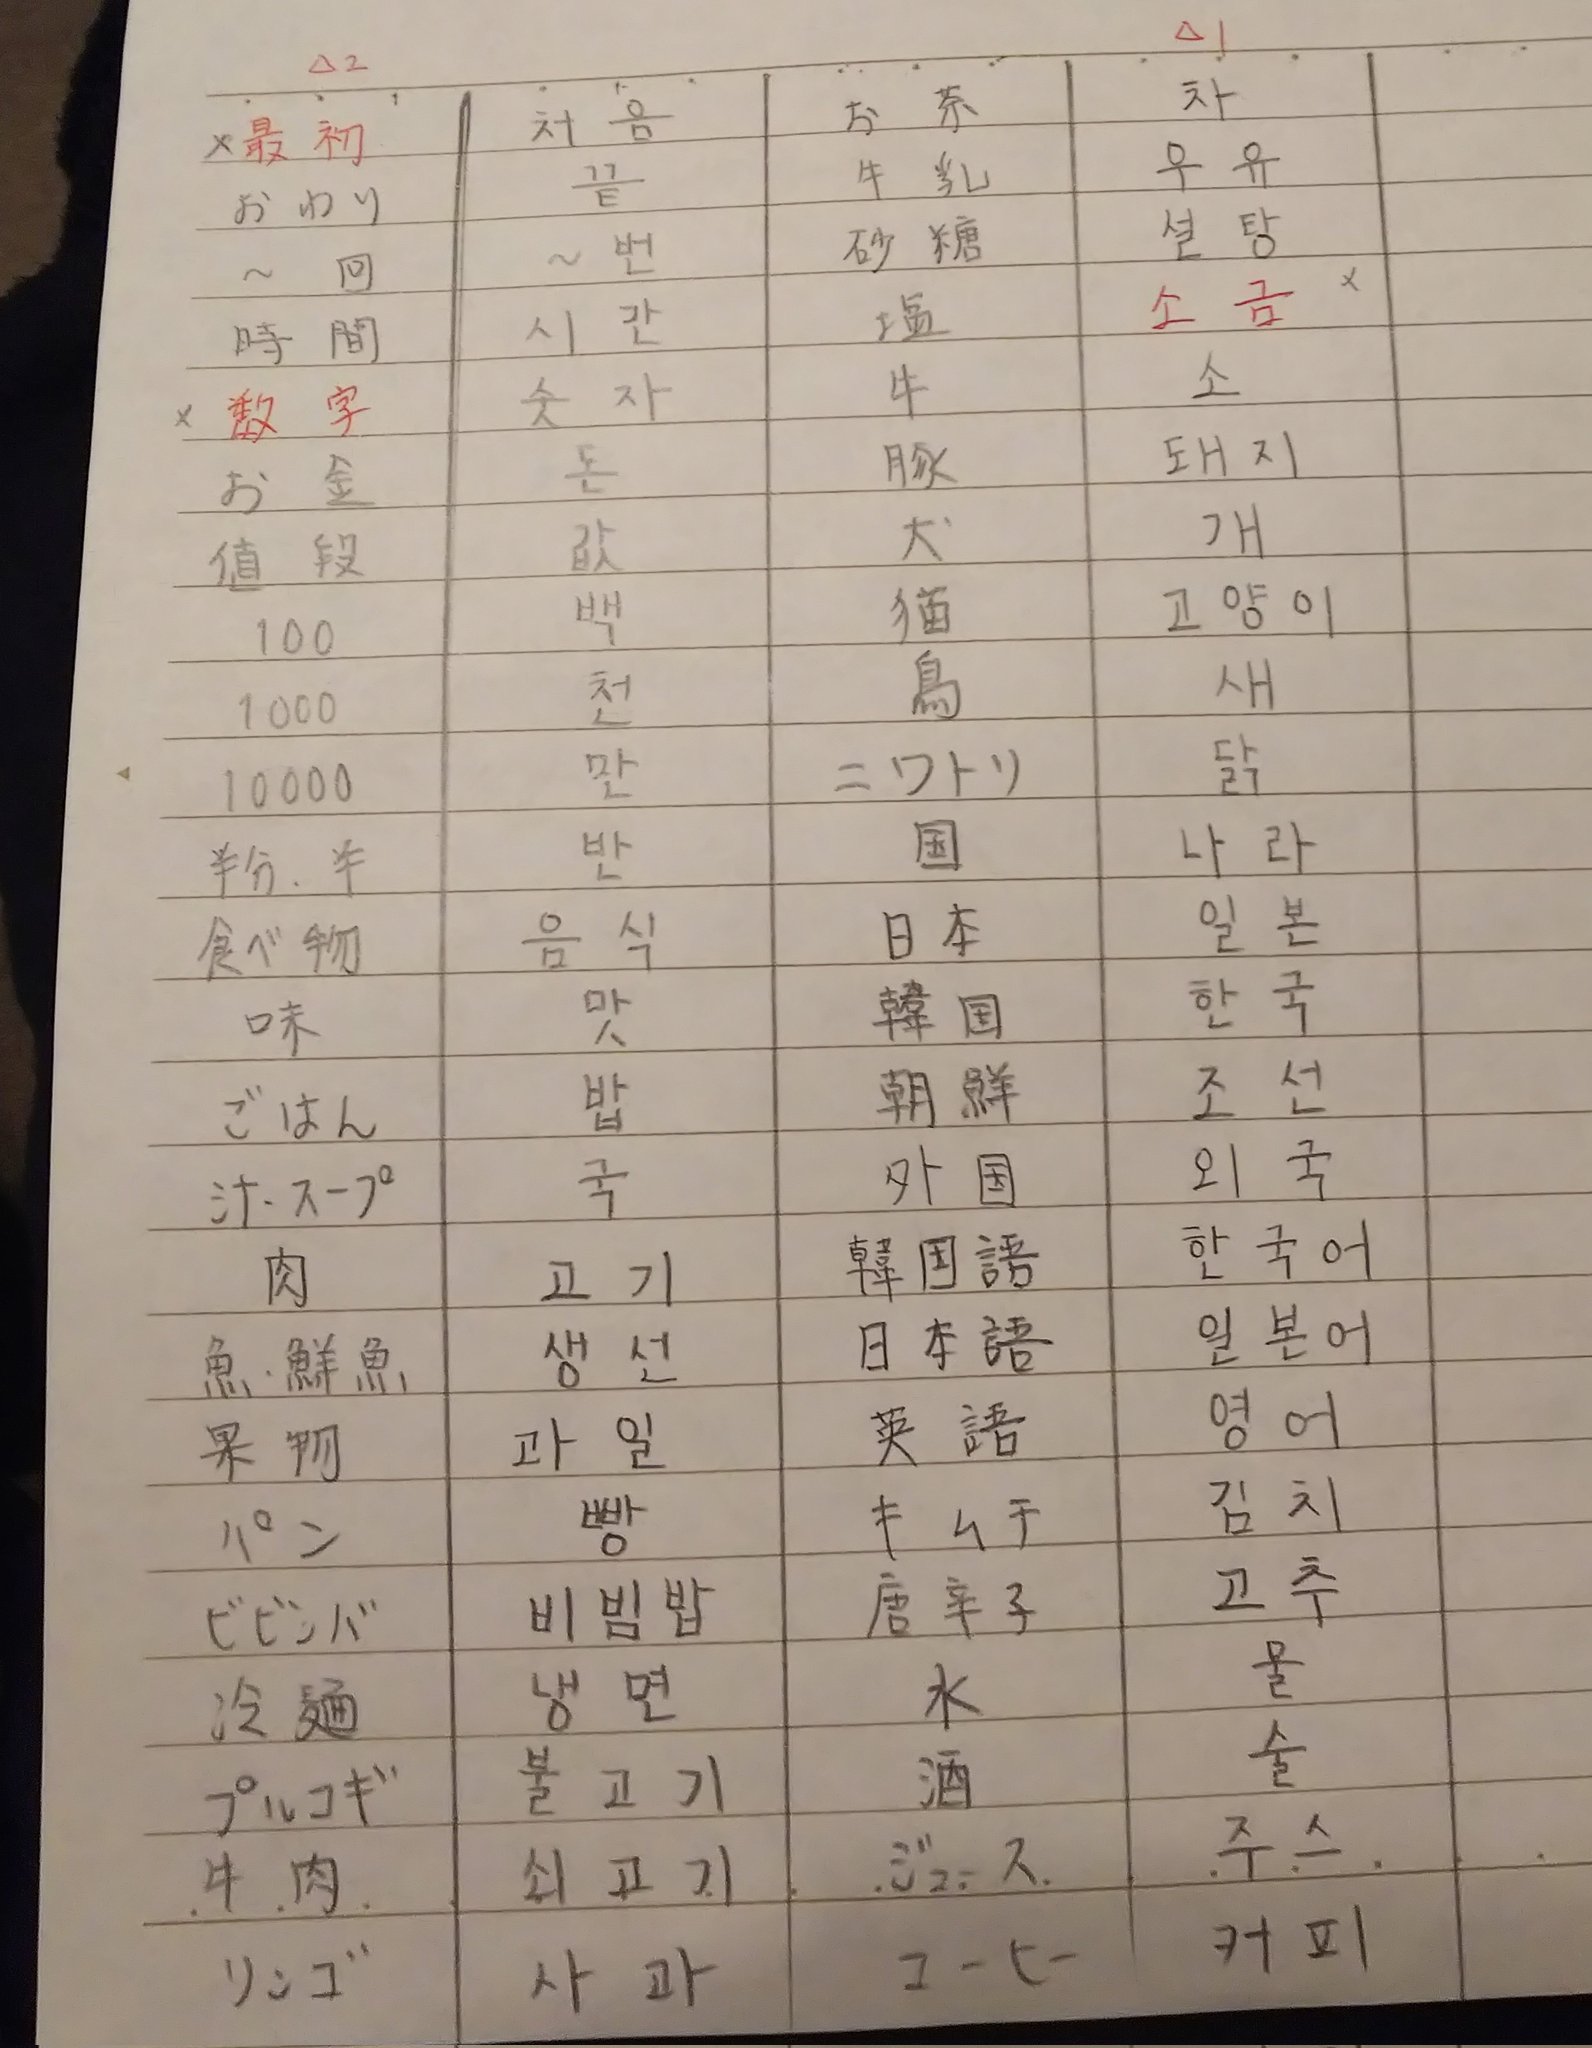 △2 △1
×最初 처음 お茶 차
おわり 끝 牛乳 우유
～回 ～번 砂糖 설탕
時間 시간 塩 소금 ×
×数字 숫자 牛 소
お金 돈 豚 돼지
値段 값 犬 개
100 백 猫 고양이
1000 천 鳥 새
10000 만 ニワトリ 닭
半分.半 반 国 나라
食べ物 음식 日本 일본
味 맛 韓国 한국
ごはん 밥 朝鮮 조선
汁・スープ 국 外国 외국
肉 고기 韓国語 한국어
魚・鮮魚 생선 日本語 일본어
果物 과일 英語 영어
パン 빵 キムチ 김치
ビビンバ 비빔밥 唐辛子 고추
冷麺 냉면 水 물
プルコギ 불고기 酒 술
牛肉 쇠고기 ジュース 주스
リンゴ 사과 コーヒー 커피